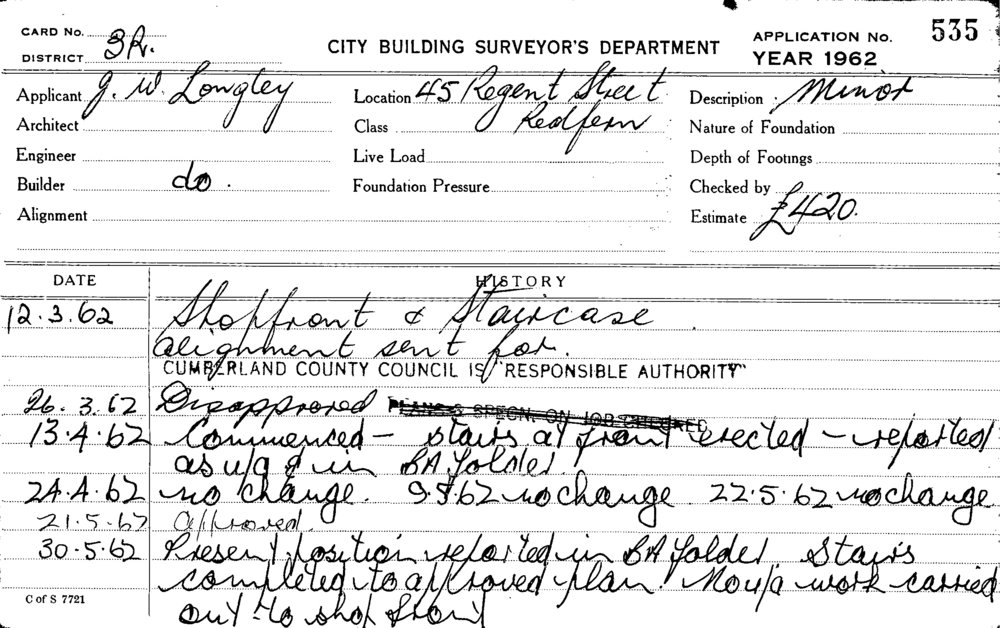 CARD No.
DISTRICT 3R.
CITY BUILDING SURVEYOR'S DEPARTMENT
APPLICATION No. 535
YEAR 1962
Applicant J. W. Longley
Location 45 Regent Street
Description Minor
Architect
Class Redfern
Nature of Foundation
Engineer
Live Load
Depth of Footings
Builder do.
Foundation Pressure
Checked by
Alignment
Estimate £420.
DATE HISTORY
12.3.62 Shopfront & Staircase
alignment sent for.
CUMBERLAND COUNTY COUNCIL IS "RESPONSIBLE AUTHORITY"
26.3.62 Disapproved PLANS & SPECN. ON JOB CHECKED
13.4.62 Commenced – stairs at front erected – reported
as u/a in BA folder
24.4.62 no change. 9.5.62 no change. 22.5.62 no change.
21.5.62 Approved.
30.5.62 Present position reported in BA folder Stairs
completed to approved plan. No u/a work carried
out to shop front
C of S 7721